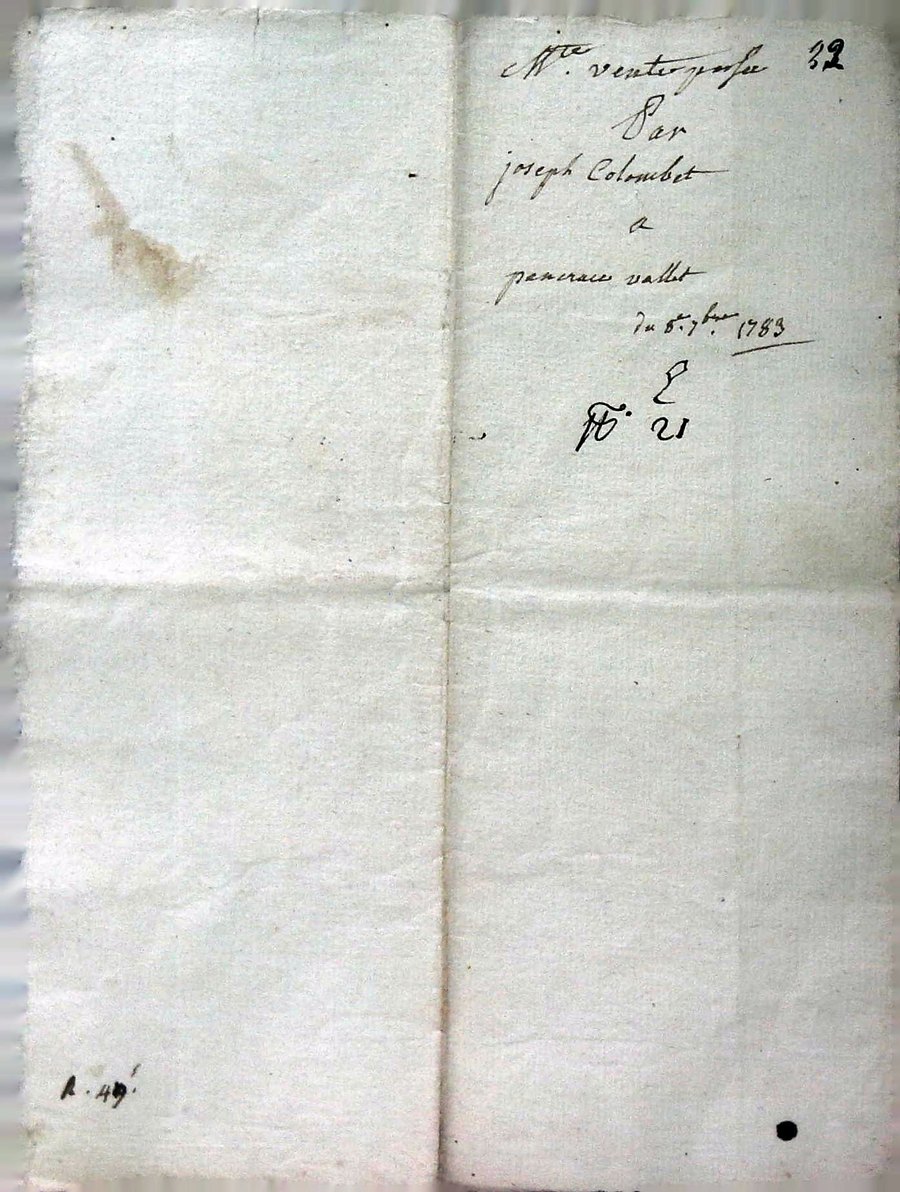 Mte. vente passée 32
Par
joseph Colombet
a
pancrace vallet
du 8e. 7bre. 1783
N. 21
R. 49